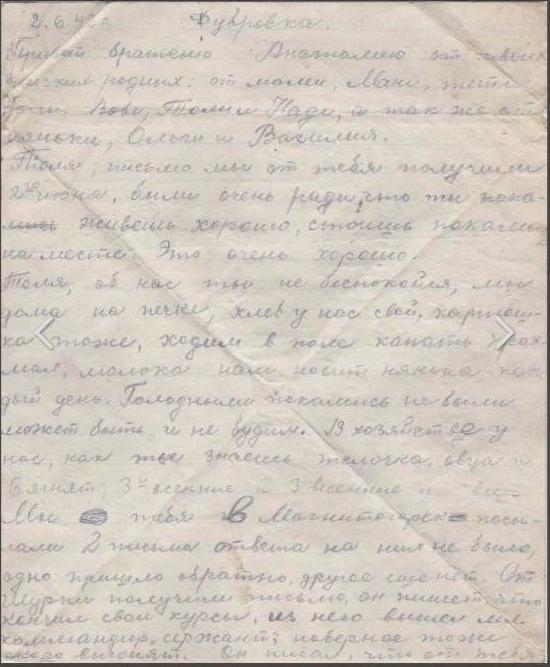 2.6.42г Дубровка.
Привет братению Анатолию от твоих
близких родных: от мамы, Мани, тети
Вовы, Толи и Нади, а так же от
няньки, Ольги и Василия.
Толя, письмо мы от тебя получили
2го июня, были очень рады, что ты пока-
живешь хорошо, стоишь покамись
на месте. Это очень хорошо.
Толя, об нас ты не беспокойся, мы
дома на печке, хлеб у нас свой, картош-
ка тоже, ходим в поле капать крах-
мал, молока нам носит нянька каж-
дый день. Голодными покамись не были
может быть и не будим. В хозяйстве у
нас, как ты знаешь телочка, овца и
6 ягнят, 3 осенние и 3 весенние и
Мы тебя в Магнитогорск посы-
лали 2 письма ответа на них не было,
одно пришло обратно, другое еще нет. От
Шурки получили письмо, он пишет что
кончил свои курсы, из него вышел мл.
командир, сержант; наверное тоже
скоро выгонят. Он писал, что от тебя